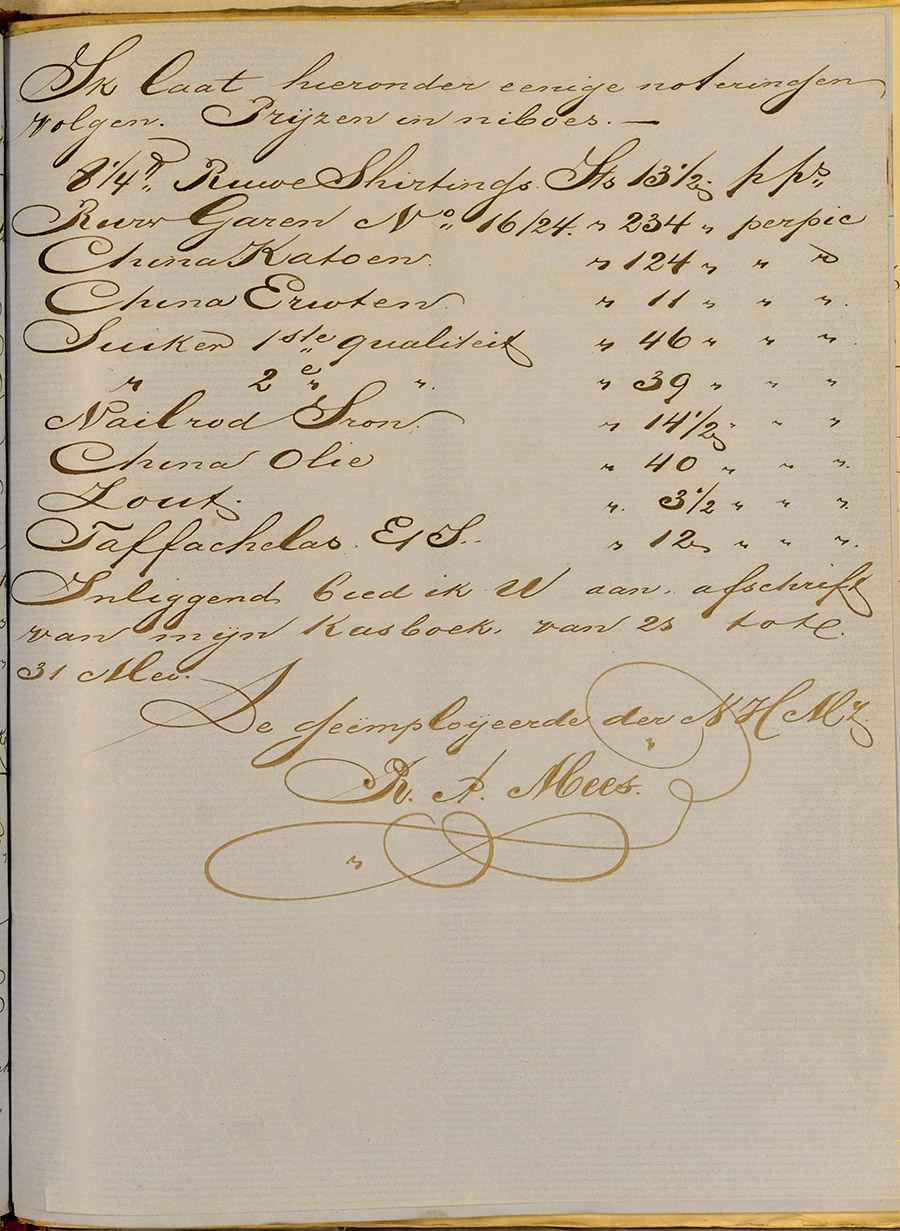 Ik laat hieronder eenige noteringen
volgen. Prijzen in niboes. —
8 1/4 ℔ Ruwe Shirtings Its 13 1/2 p ps
Ruw Garen No 16/24. " 234 " per pic
China Katoen. " 124 " " "
China Erwten " 11 " " ".
Suiker 1ste qualiteit " 46 " " "
" 2e " ". " 39 " " "
Nailrod Iron. " 14 1/2 " " "
China Olie " 40 " " ".
Zout. ". 3 1/2 " " "
Taffachelas. E/S. " 12 " " ".
Inliggend bied ik U aan. afschrift
van mijn Kasboek. van 23 tot
31 Mei.
De geëmployeerde der N H Mij.
R. A. Mees.